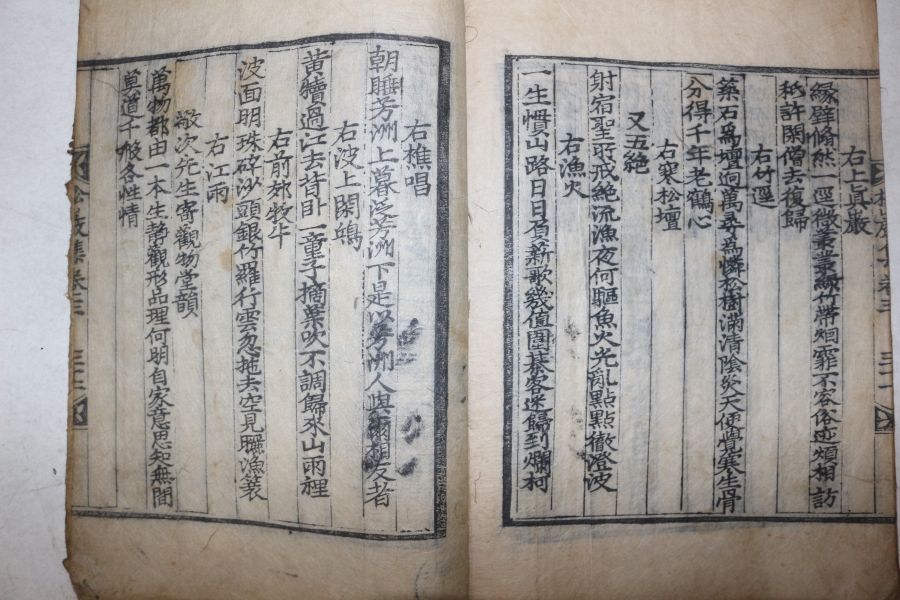 右上眞巖
緣壁翛然一逕微叢叢綠竹帶烟霏不容俗迹煩相訪
秪許閑僧去復歸
右竹逕
築石爲壇逈萬尋爲憐松樹滿清陰炎天便覺寒生骨
分得千年老鶴心
右寒松壇
又五絶
射宿聖所戒絶流漁夜何驅魚火光亂點點徹澄波
右漁火
一生慣山路日日有薪歌幾值圍碁客迷歸到爛柯
右樵唱
朝睡芳洲上暮泛芳洲下是以芳洲人與爾相友者
右波上閑鷗
黃犢過江去昔卧一童子摘葉吹不調歸來山雨裡
右前郊牧牛
波面明珠碎沙頭銀竹羅行雲忽拖去空見曬漁蓑
右江雨
敬次先生寄觀物堂韻
萬物都由一本生静觀形品理何明自家意思知無間
莫道千般各性情
松巖集卷三
三十二